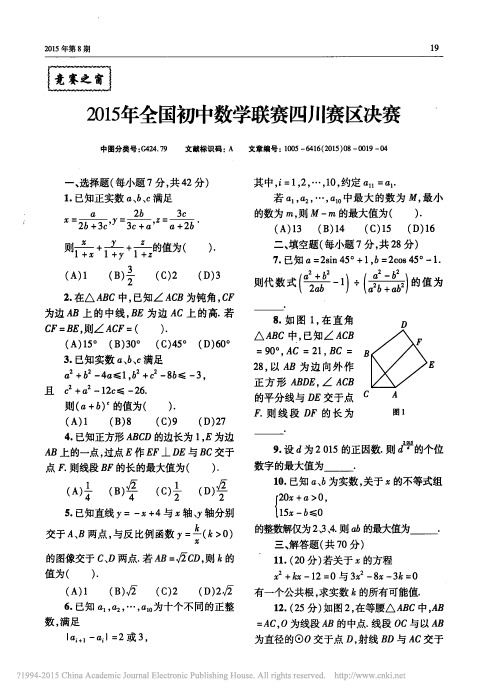 2015 年第 8 期
19
竞赛之窗
2015年全国初中数学联赛四川赛区决赛
中图分类号:G424.79 文献标识码: A 文章编号: 1005-6416(2015)08-0019-04
一、选择题(每小题 7 分,共 42 分)
1. 已知正实数 a、b、c 满足
x = a/(2b+3c), y = 2b/(3c+a), z = 3c/(a+2b).
则 x/(1+x) + y/(1+y) + z/(1+z) 的值为( ).
(A)1 (B)3/2 (C)2 (D)3
2. 在△ABC 中,已知∠ACB 为钝角,CF
为边 AB 上的中线,BE 为边 AC 上的高. 若
CF = BE,则∠ACF = ( ).
(A)15° (B)30° (C)45° (D)60°
3. 已知实数 a、b、c 满足
a²+b²-4a≤1,b²+c²-8b≤-3,
且 c²+a²-12c≤-26.
则(a+b)ᶜ 的值为( ).
(A)1 (B)8 (C)9 (D)27
4. 已知正方形 ABCD 的边长为 1,E 为边
AB 上的一点,过点 E 作 EF⊥DE 与 BC 交于
点 F. 则线段 BF 的长的最大值为( ).
(A)1/4 (B)√2/4 (C)1/2 (D)√2/2
5. 已知直线 y = -x+4 与 x 轴、y 轴分别
交于 A、B 两点,与反比例函数 y = k/x (k>0)
的图像交于 C、D 两点. 若 AB = √2CD,则 k 的
值为( ).
(A)1 (B)√2 (C)2 (D)2√2
6. 已知 a₁,a₂,…,a₁₀为十个不同的正整
数,满足
|aᵢ₊₁-aᵢ| = 2 或 3,
其中,i = 1,2,…,10,约定 a₁₁ = a₁.
若 a₁,a₂,…,a₁₀中最大的数为 M,最小
的数为 m,则 M-m 的最大值为( ).
(A)13 (B)14 (C)15 (D)16
二、填空题(每小题 7 分,共 28 分)
7. 已知 a = 2sin 45°+1,b = 2cos 45°-1.
则代数式((a²+b²)/2ab - 1) ÷ ((a²-b²)/(a²b+ab²)) 的值为
______.
8. 如图 1,在直角
△ABC 中,已知∠ACB
= 90°,AC = 21,BC =
28,以 AB 为边向外作
正方形 ABDE,∠ACB
的平分线与 DE 交于点
F. 则线段 DF 的长为
______.
D
F
B
E
C A
图 1
9. 设 d 为 2 015 的正因数. 则 d^(2015/d) 的个位
数字的最大值为______.
10. 已知 a、b 为实数,关于 x 的不等式组
{20x+a>0,
15x-b≤0
的整数解仅为 2、3、4. 则 ab 的最大值为______.
三、解答题(共 70 分)
11. (20 分)若关于 x 的方程
x²+kx-12=0 与 3x²-8x-3k=0
有一个公共根,求实数 k 的所有可能值.
12. (25 分)如图 2,在等腰△ABC 中,AB
= AC,O 为线段 AB 的中点. 线段 OC 与以 AB
为直径的⊙O 交于点 D,射线 BD 与 AC 交于
?1994-2015 China Academic Journal Electronic Publishing House. All rights reserved. http://www.cnki.net